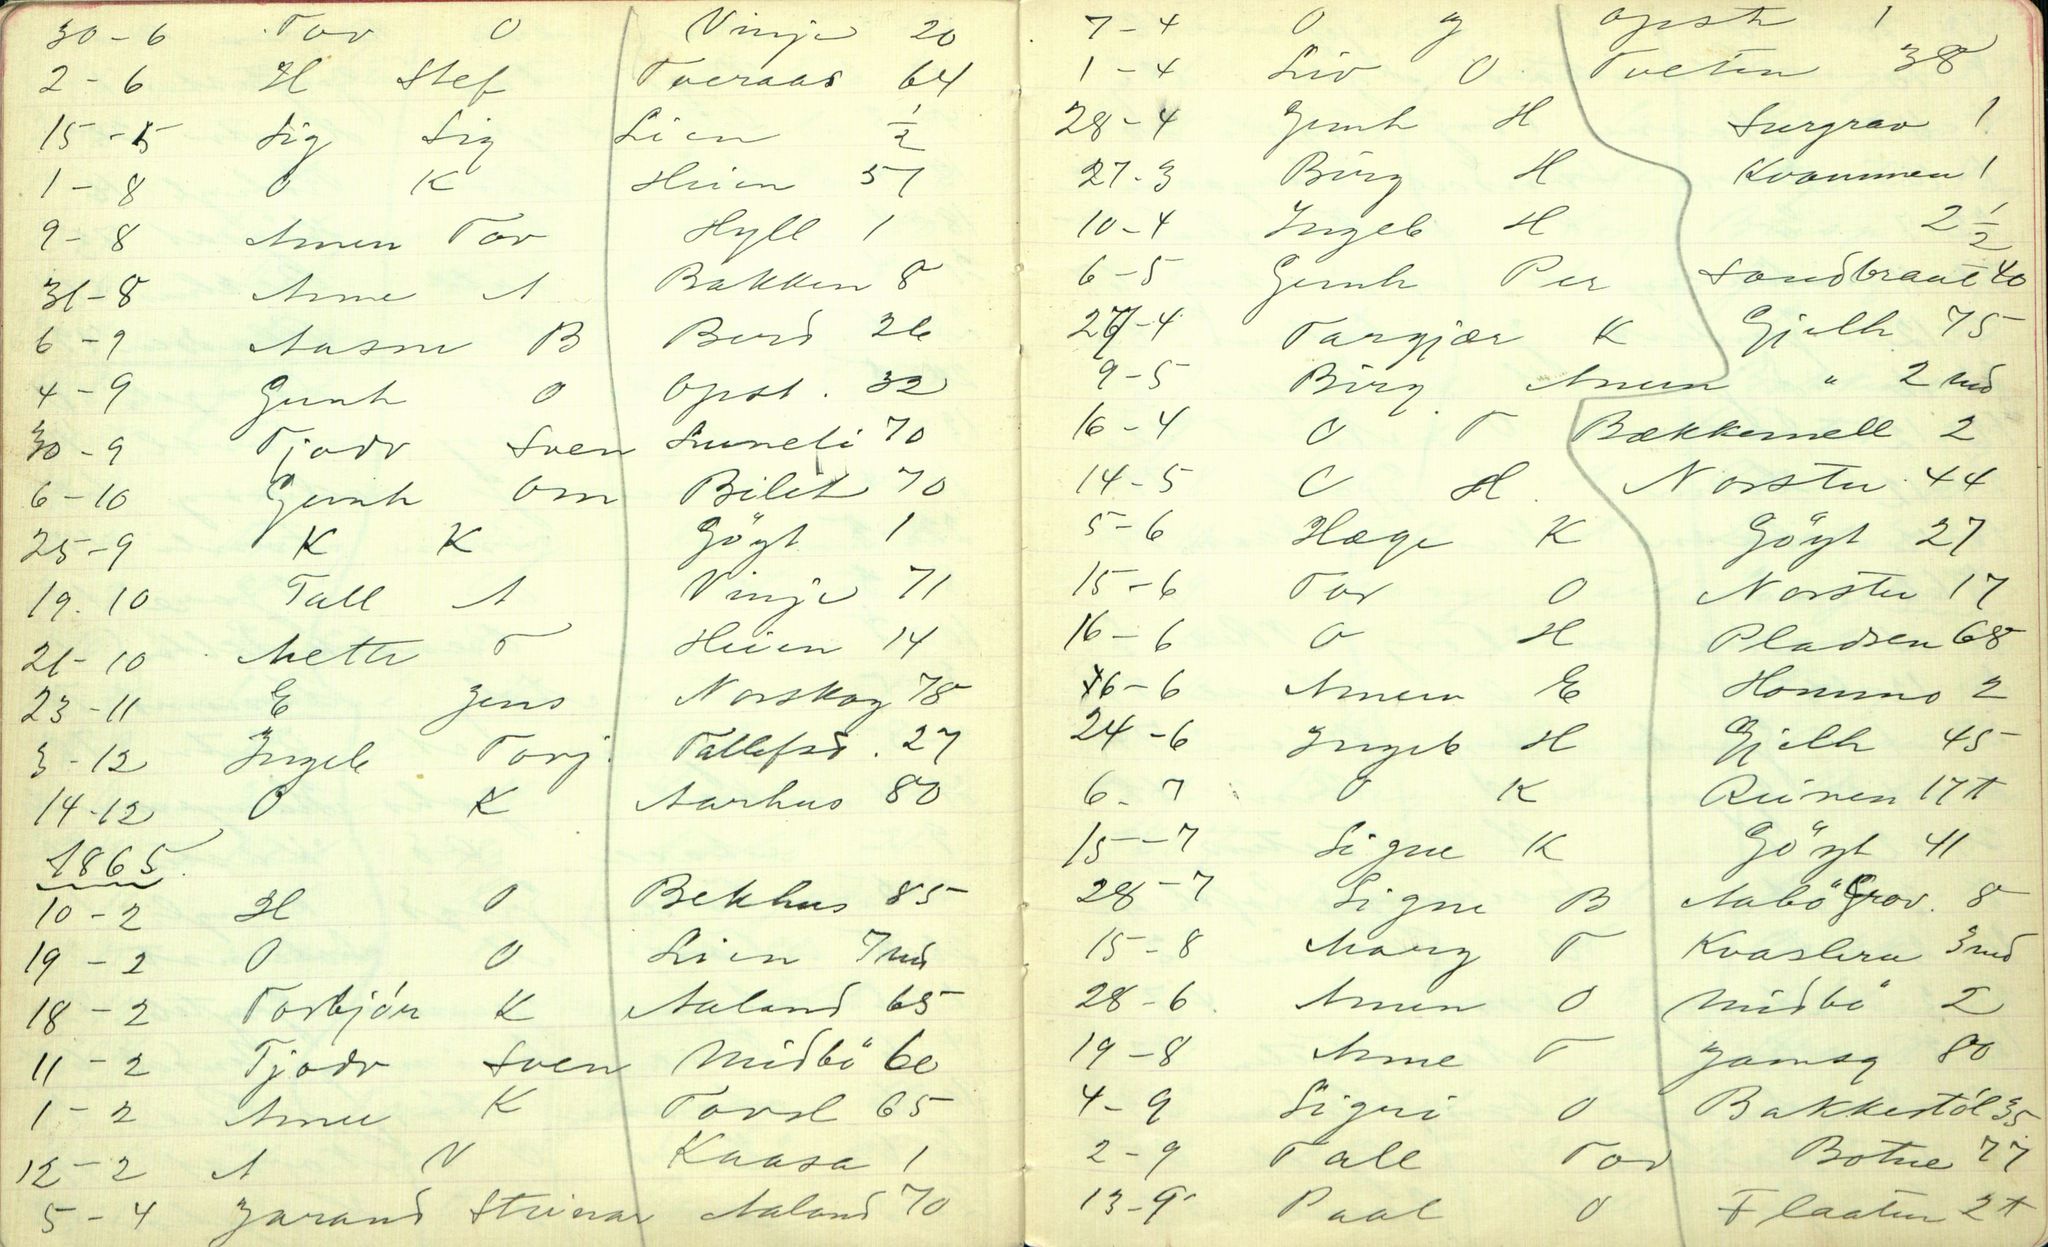 30-6 Tov O Vinje 20
2-6 H Stef Tveraas 64
15-5 Sig Sig Lien 1/2
1-8 O K Heien 57
9-8 Amen Tov Hyll 1
31-8 Anne A Bakken 8
6-9 Aasne B Berd 26
4-9 Gunh O Opst. 32
30-9 Tjodv Sven 70
6-10 Gunh Om Bilet 70
25-9 K K Göyt 1
19.10 Tall A Vinje 71
21-10 Mette T Heien 14
23-11 E Jens Norskog 78
3-12 Ingeb Torj. Tallefsd. 27
14-12 O K Aarhus 80
1865.
10-2 H O Bekhus 85
19-2 O O Lien 7 md
18-2 Torbjör K Aaland 65
11-2 Tjodv Sven Midbö 60
1-2 Anne K Tovsl 65
12-2 A N Kaasa 1
5-4 Jarand Steinar Aaland 70
7-4 O g Opst 1
1-4 Liv O Tveten 38
28-4 Gunh H Surgrav 1
27-3 Birg H Kvammen 1
10-4 Ingeb H 2 1/2
6-5 Gunh Per Sandbraut 40
27-4 Targjær K Gjelh 75
9-5 Birg Amun " 2 md
16-4 O T Bækkemell 2
14-5 O H. Norstu 44
5-6 Hæge K Göyt 27
15-6 Tov O Norstu 17
16-6 O H Pladsen 68
16-6 E Hommo 2
24-6 Ingeb H Gjelh 45
6-7 O K 17 t
15-7 Signe K Göyt 41
28-7 Signe B Aabö Grov. 8
15-8 Marg T 3 md
28-6 Amun O Midbö 2
19-8 Anne T Jamsg 80
4-9 Signi O Bakkestöl 35
2-9 Tall Tov Botne 77
13-9 Paal O Flaaten 2 t